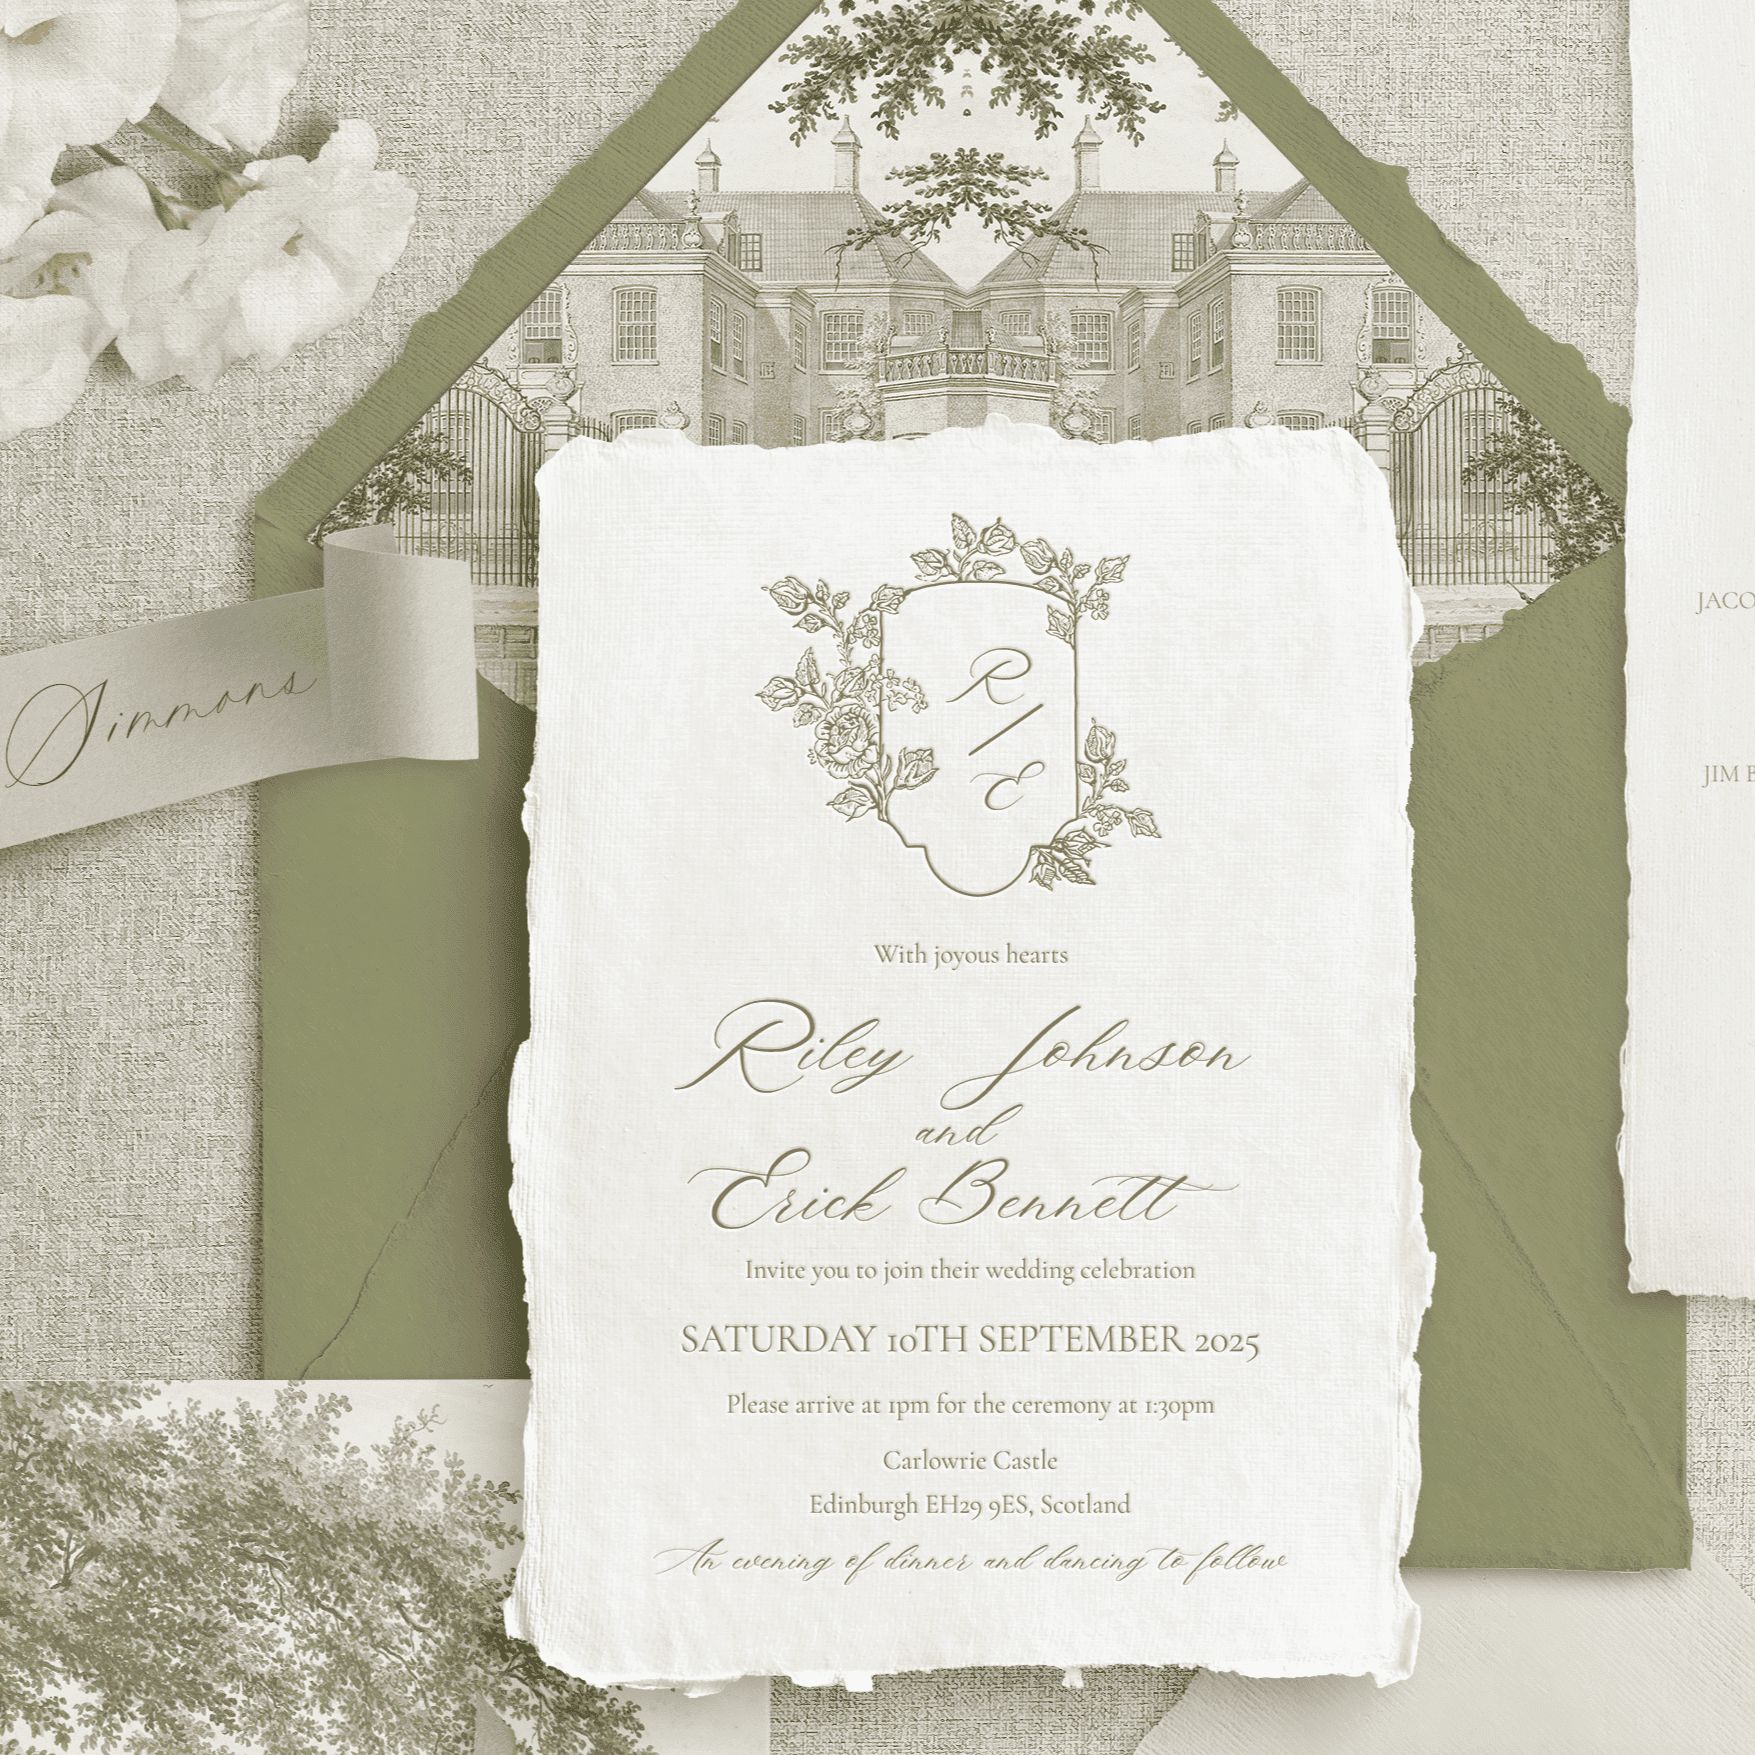 Simmons
R
/
E
With joyous hearts
Riley Johnson
and
Erick Bennett
Invite you to join their wedding celebration
SATURDAY 10TH SEPTEMBER 2025
Please arrive at 1pm for the ceremony at 1:30pm
Carlowrie Castle
Edinburgh EH29 9ES, Scotland
An evening of dinner and dancing to follow
JACO
JIM